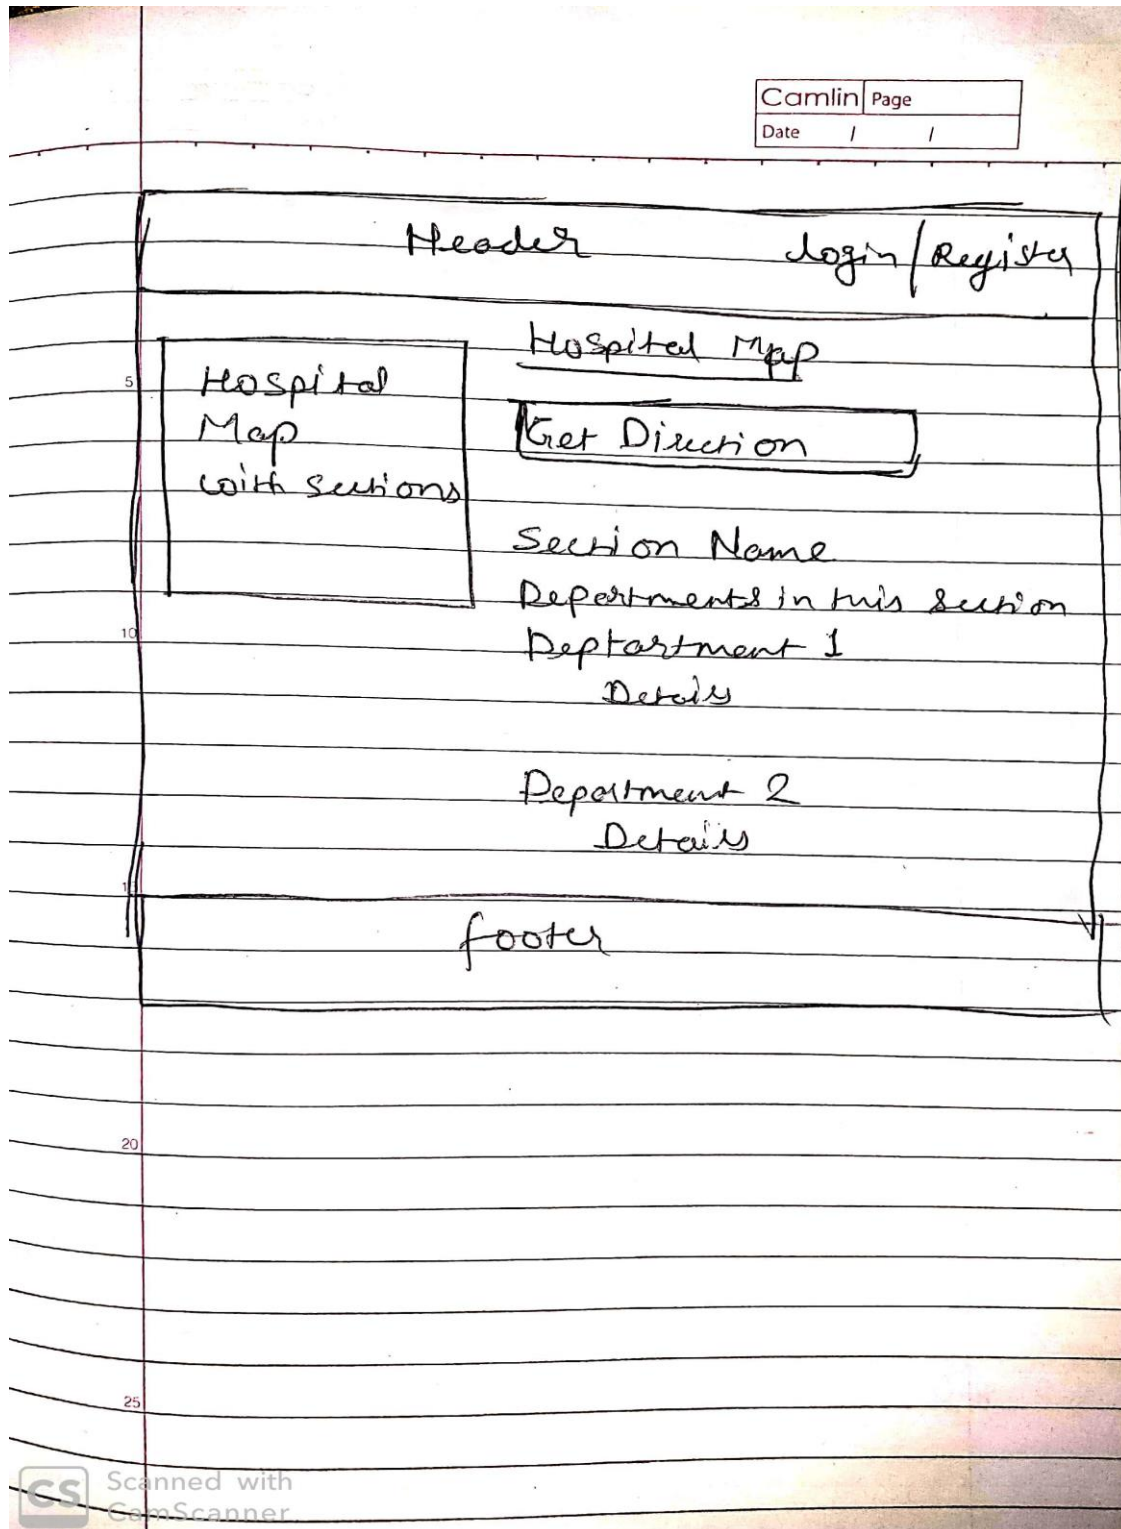 Camlin Page
Date / /
Header login / Register
Hospital Map
Get Direction
Hospital
Map
with sections
5
Section Name
Departments in this section
10
Deptartment 1
Details
Department 2
Details
footer
20
25
CS Scanned with
CamScanner